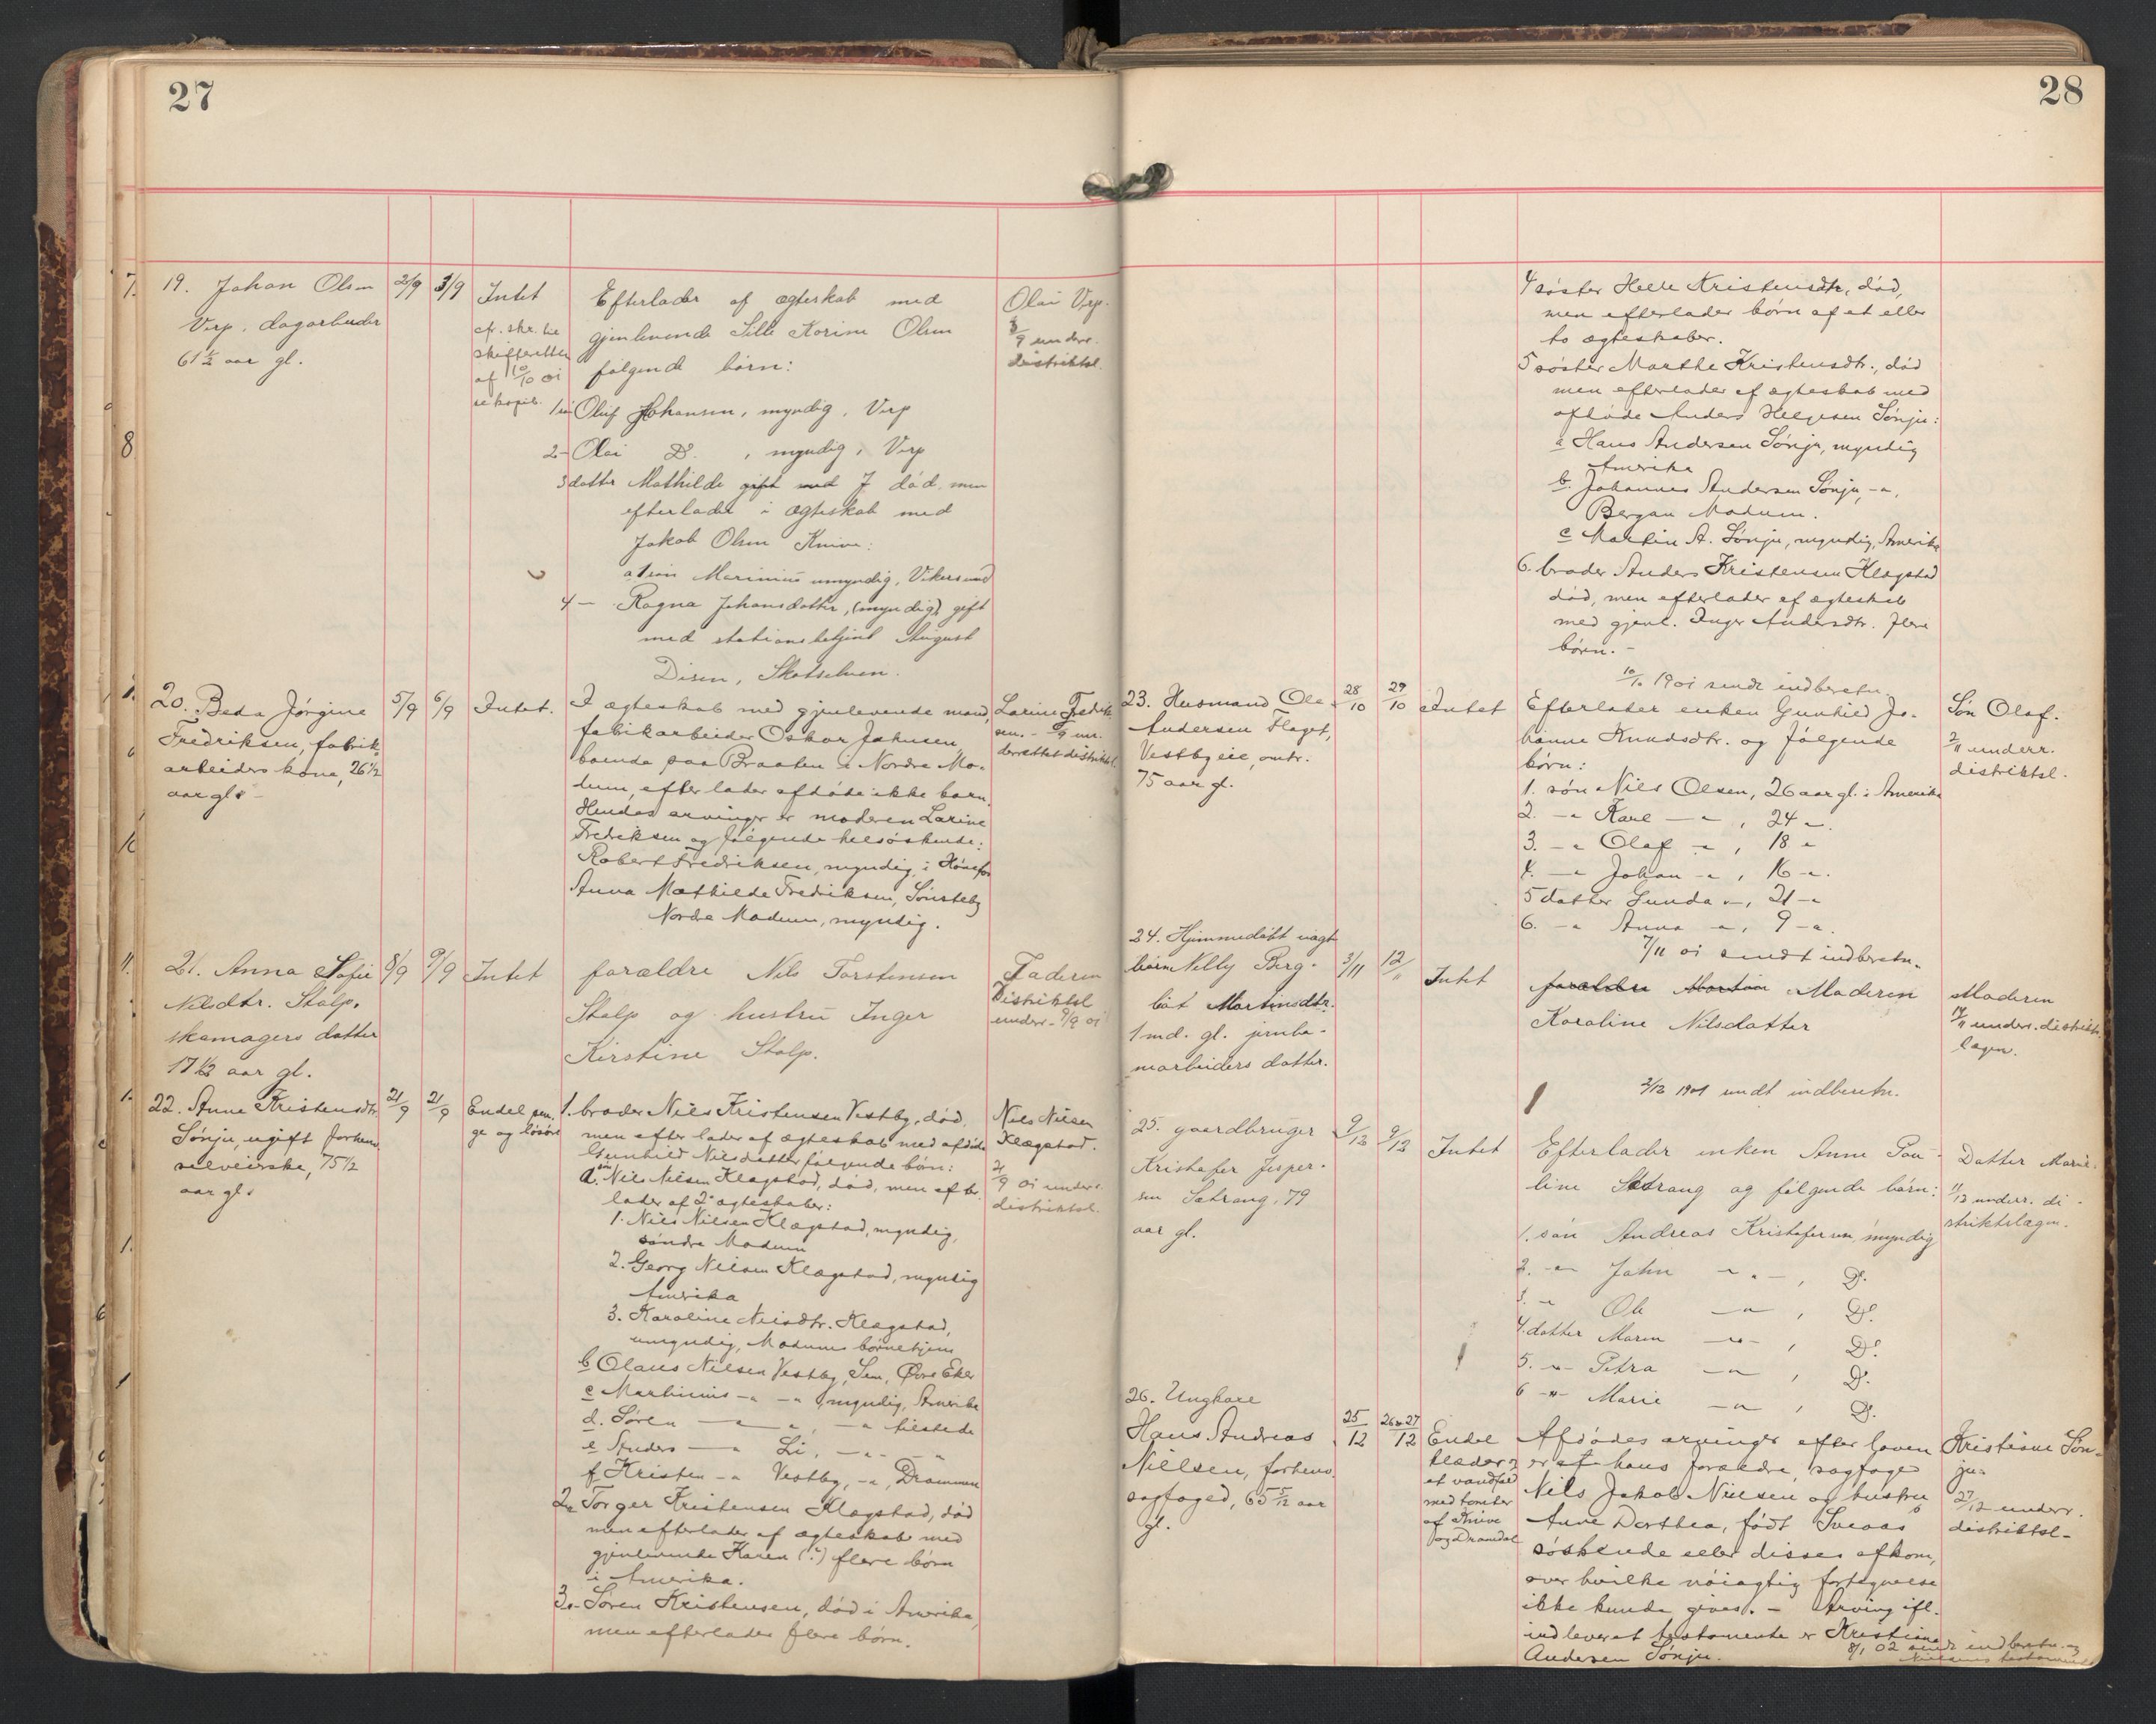 27
19. Johan Olsen
Verp. dagarbeider
61 1/2 aar gl.
2/9
3/9
Intet
cf. skr. til
skifteretten
af 10/10 01
se kopib.
Efterlader af ægteskab med
gjenlevende Sille Karine Olsen
følgende børn:
1 søn Oluf Johansen, myndig, Verp
2 - Olai Do. , myndig, Verp
3 datter Mathilde gift med J død men
efterlader i ægteskab med
Jakob Olsen Knive:
a 1 søn Marinius umyndig, Vikersund
4 - Ragna Johansdatter, (myndig) gift
med stationsbetjent August
Disen, Skotselven.
Olai Verp.
3/9 underr.
distriktsl.
20. Beda Jørgine
Fredriksen, fabrik-
arbeiders kone, 26 1/2
aar gl. -
5/9
6/9
Intet.
I ægteskab med gjenlevende mand,
fabrikarbeider Oskar Johnsen,
boende paa Braaten i Nordre Mo-
dum, efterlader afdøde ikke barn.
Hendes arvinger er moderen Larine
Fredriksen og følgende helsøskende:
Robert Fredriksen, myndig, i Hønefos
Anna Mathilde Fredriksen, Sønsteby
Nordre Modum, myndig.
Larine Fredrik-
sen. - 6/9 un-
derrettet distriktsl.
21. Anna Sofie
Nilsdtr. Stalp.
skomagers datter
17 1/2 aar gl.
8/9
9/9
Intet
forældre Nils Torstensen
Stalp og hustru Inger
Kirstine Stalp.
Faderen
Distriktsl
underr. 9/9 01
22. Anne Kristensdtr.
Sønju, ugift forhenv.
selveierske, 75 1/2
aar gl.
21/9
21/9
Endel pen-
ge og løsøre
1. broder Niels Kristensen Vestby, død,
men efterlader af ægteskab med afdøde
Gunhild Nilsdatter følgende børn:
a. søn Nils Nilsen Klagstad, død, men efter-
lader af 2 ægteskaber:
1. Nils Nilsen Klagstad, myndig,
søndre Modum
2. Georg Nilsen Klagstad, myndig
Amerika
3. Karoline Nilsdtr. Klagstad,
umyndig, Modums børnehjem
b Olaus Nilsen Vestby, Sem, Øvre Eker
c Marthinius -"- -"- , myndig, Amerika
d. Søren -"- -"- -"- tilstede
e Anders -"- Li, -"- -"-
f. Kristen -"- Vestby, -"-, Drammen
2. Torger Kristensen Klagstad, død
men efterlader af ægteskab med
gjenlevende Karen (?) flere børn
i Amerika.
3. Søren Kristensen, død i Amerika,
men efterlader flere børn.
Nils Nilsen
Klagstad.
21/9 01 underr.
distriktsl.
28
4 søster Helle Kristensdtr, død,
men efterlader børn af et eller
to ægteskaber.
5 søster Marthe Kristensdtr., død
men efterlader af ægteskab med
afdøde Anders Helgesen Sønju:
a Hans Andersen Sønju, myndig
Amerika
b. Johannes Andersen Sønju, -"-,
Bergan Modum.
c Martin A. Sønju, myndig, Amerika
6. broder Anders Kristensen Klagstad
død, men efterlader af ægteskab
med gjenl. Inger Andersdtr. flere
børn. -
10/10 1901 sendt indberetn.
23. Husmand Ole
Andersen Flaget,
Vestby eie, omtr.
75 aar gl.
28/10
29/10
Intet
Efterlader enken Gunhild Jo-
hanne Knudsdtr. og følgende
børn:
1. søn Nils Olsen, 26 aar gl. i Amerika
2. -"- Karl -"- , 24 -"-.
3. -"- Olaf -"- , 18 -"-
4. -"- Johan -"- , 16 -"-.
5 datter Gunda -"-, 21 -"-
6. -"- Anna -"-, 9 -"-.
7/11 01 sendt indberetn.
Søn Olaf.
2/11 underr.
distriktsl.
24. Hjemmedøbt uægte
barn Nelly Berg-
liot Martinsdtr.
1 md. gl. jernba-
nearbeiders datter.
3/11
12/11
Intet
forældre Martin Moderen
Karoline Nilsdatter
2/12 1901 sendt indberetn.
Moderen
12/11 underr. distrikts
lægen.
25. gaardbruger
Kristofer Jesper-
sen Sætrang, 79
aar gl.
9/12
9/12
Intet
Efterlader enken Anne Pau-
line Sætrang og følgende børn:
1. søn Andreas Kristofersen, myndig
2. -"- John -"- , Do.
3. -"- Ole -"- , Do.
4. datter Maren -"- , Do.
5. -"- Petra -"- , Do.
6 -"- Marie -"- , Do.
Datter Marie.
11/12 underr. di-
striktslægen.
26. Ungkarl
Hans Andreas
Nielsen, forhenv.
sagfoged, 65 5/12 aar
gl.
25/12
26 a 27/12
Endel
klæder &
et vandfald
med tomter
af Knive
og Dramdal
Afdødes arvinger efter loven
er af hans forældre, sagfoged
Nils Jakob Nielsen og hustru
Anne Dorthea, født Sveaas 6
søskende eller disses afkom,
over hvilke nøiagtig fortegnelse
ikke kunde gives. - Arving ifl.
indleveret testamente er Kristiane
Andersen Sønju.
8/1 02 sendt indberetn. og
Nielsens testamente
Kristiane Søn-
ju.
27/12 underr.
distriktsl.